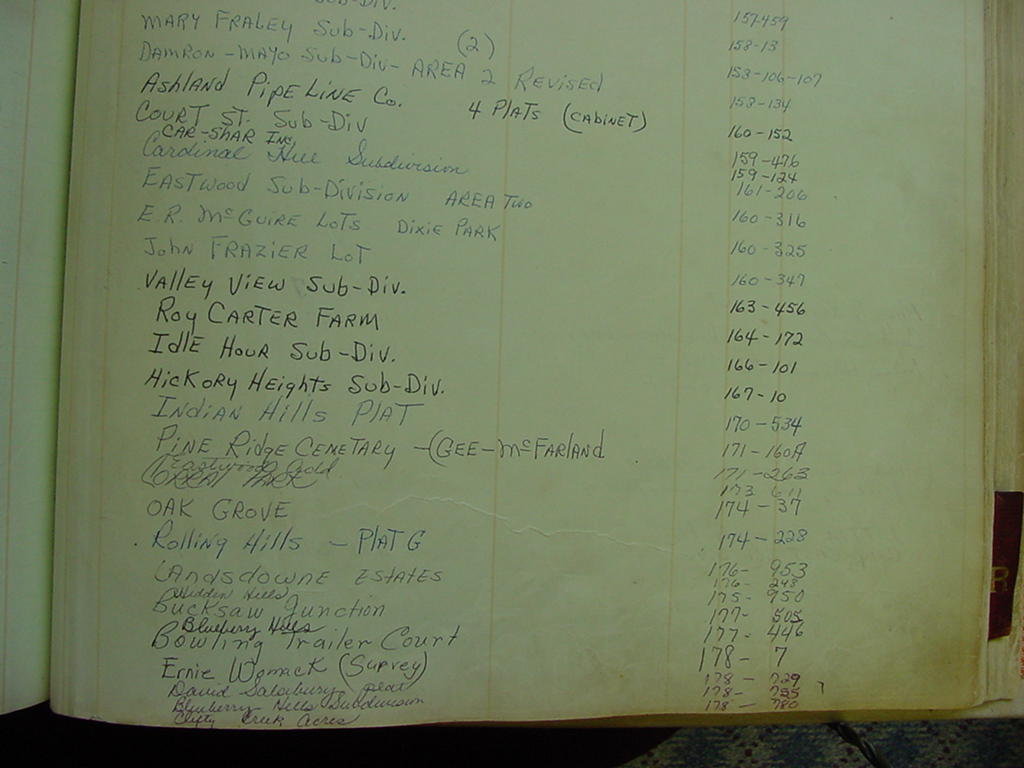 R
Sub-Div.
MARY FRALEY Sub-Div. 157-459
DAMRON-MAYO Sub-Div- AREA 2 (2) 158-13
ASHLAND PIPE LINE Co. REVISED 153-106-107
COURT ST. Sub-Div 4 PLATS (CABINET) 158-134
CAR-SHAR INC. 160-152
Cardinal Hill Subdivision 159-476
159-124
EASTWOOD SUB-DIVISION AREA TWO 161-206
E.R. McGUIRE LOTS DIXIE PARK 160-316
JOHN FRAZIER LOT 160-325
VALLEY VIEW SUB-DIV. 160-347
ROY CARTER FARM 163-456
IDLE HOUR SUB-DIV. 164-172
166-101
HICKORY HEIGHTS SUB-DIV. 167-10
INDIAN HILLS PLAT 170-534
PINE RIDGE CEMETARY -(GEE-McFARLAND 171-160A
171-263
OAK GROVE 174-37
Rolling Hills - PLAT G 174-228
LANDSDOWNE ESTATES 176-953
Hills 176-248
Bucksaw Junction 175-950
Blueberry Hills 177-505
Bowling Trailer Court 177-446
Ernie Womack (Survey) 178-7
David Salisbury 178-729
Blueberry Hills Subdivision 178-735
Creek Acres 178-780